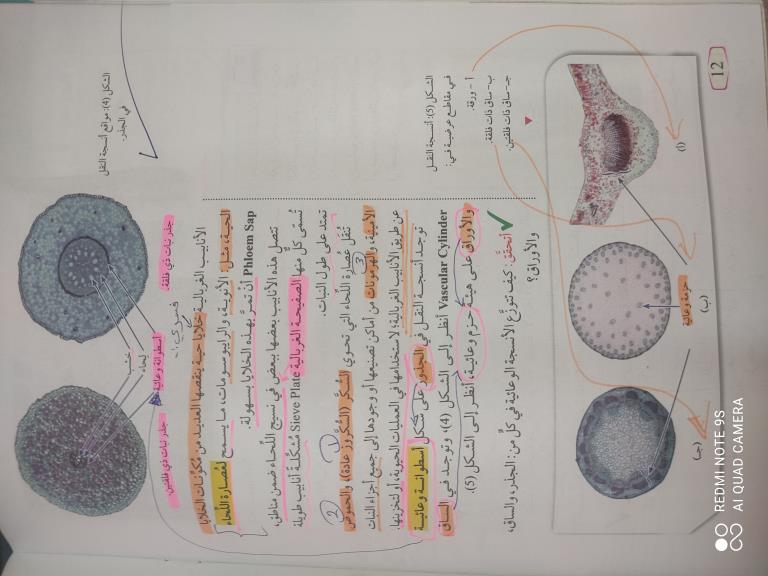 الأنابيب الغربالية خلايا حية ينقصها العديد من مكونات الخلايا
الحية، مثل: الأنوية، والرايبوسومات، ما يسمح لعُصارة اللحاء
Phloem Sap أن تمر بهذه الخلايا بسهولة.
تتصل هذه الأنابيب بعضها ببعض في نسيج اللحاء ضمن مناطق،
تُسمى كل منها الصفيحة الغربالية Sieve Plate مُشكِّلةً أنابيب طويلة
تمتد على طول النبات.
تنقل عُصارة اللحاء التي تحوي السُّكَّر (السُّكروز عادة)، والحموض
الأمينية، والهرمونات من أماكن تصنيعها أو وجودها إلى جميع أجزاء النبات
عن طريق الأنابيب الغربالية؛ لاستخدامها في العمليات الحيوية، أو لتخزينها.
توجد أنسجة النقل في الجذور على شكل أسطوانة وعائية
Vascular Cylinder أنظر إلى الشكل (4)، وتوجد في الساق
والأوراق على هيئة حزم وعائية، أنظر إلى الشكل (5).
✓ أتحقق: كيف تتوزع الأنسجة الوعائية في كل من: الجذر، والساق،
والأوراق؟
جذر نبات ذي فلقة.
جذر نبات ذي فلقتين.
أسطوانة وعائية
لحاء
خشب
الشكل (4): مواقع أنسجة النقل
في الجذر.
الشكل (5): أنسجة النقل
في مقاطع عرضية في:
أ - ورقة.
ب- ساق ذات فلقة.
جـ- ساق ذات فلقتين.
(أ)
(ب)
(جـ)
حزمة وعائية
12
REDMI NOTE 9S
AI QUAD CAMERA